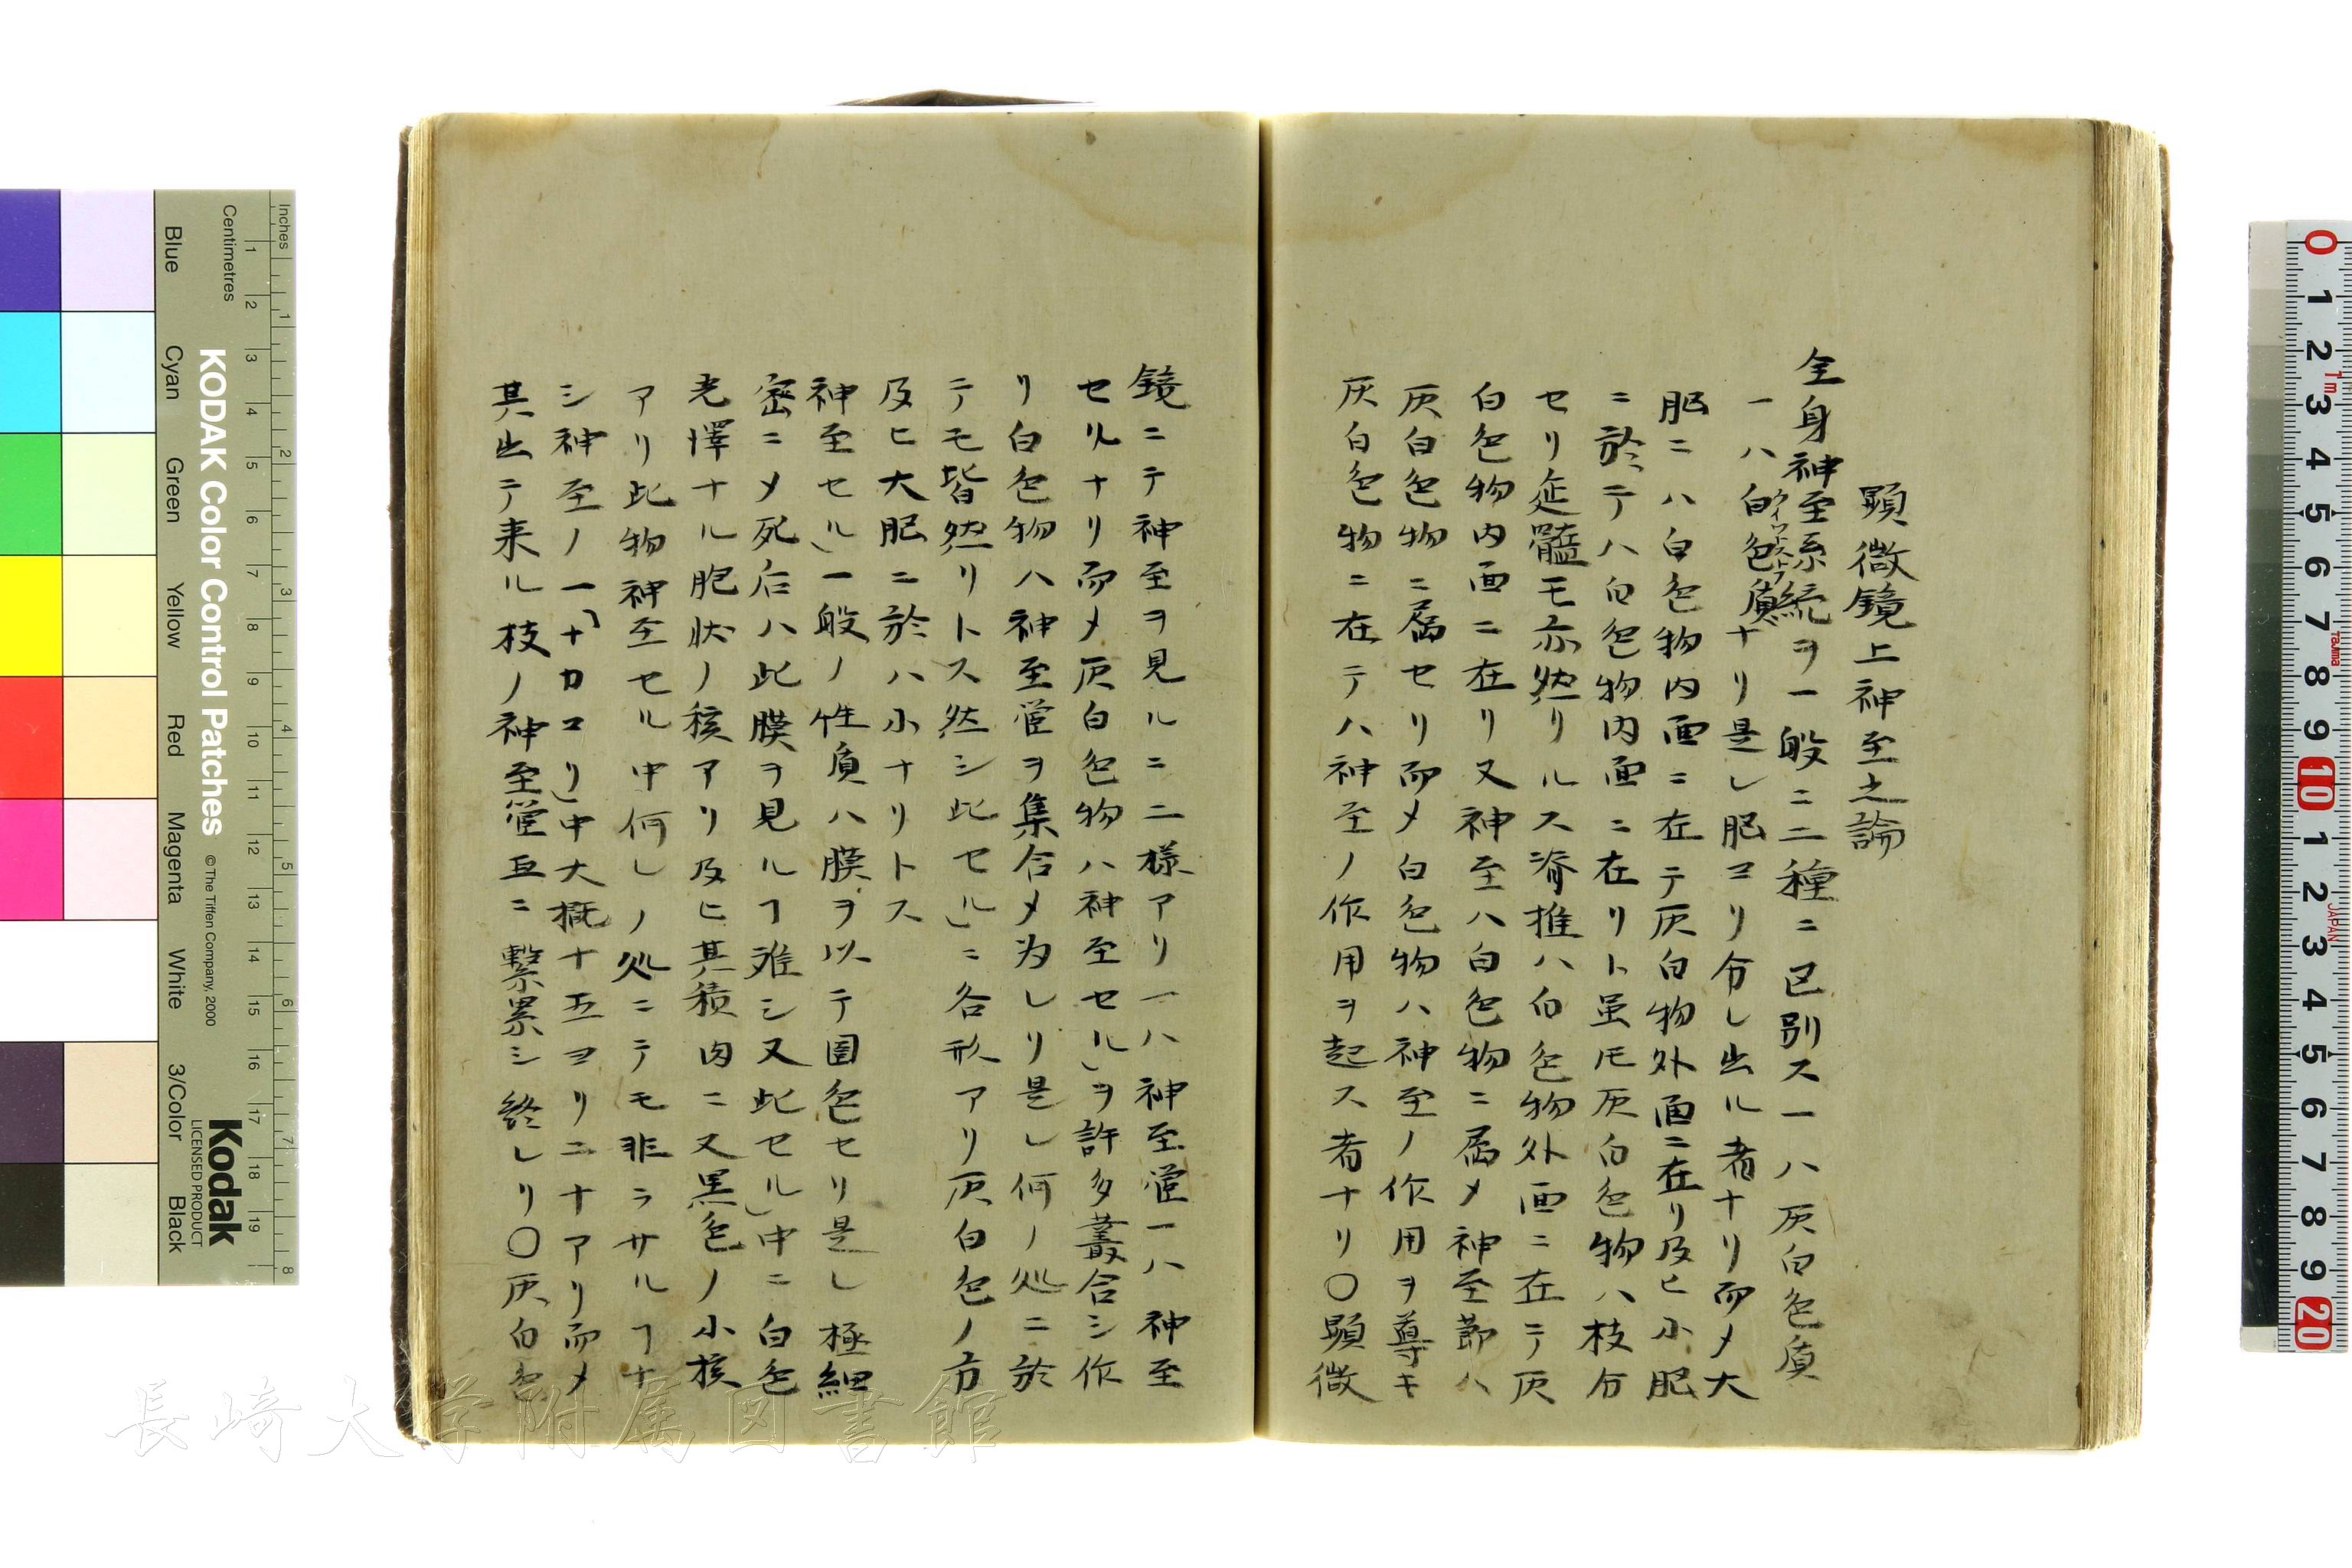 顕微鏡上神至之論
全身神至系統ヲ一般ニ二種ニ区別ス一ハ灰白色質
一ハ白色質ナリ是レ脳ヨリ分レ出ル者ナリ而メ大
脳ニハ白色物内面ニ在テ灰白物外面ニ在リ及ヒ小脳
ニ於テハ白色物内面ニ在リト虽𪜈灰白色物ハ枝分
セリ延髓モ亦然リルス脊推ハ白色物外面ニ在テ灰
白色物内面ニ在リ又神至ハ白色物ニ属メ神至節ハ
灰白色物ニ属セリ而メ白色物ハ神至ノ作用ヲ導キ
灰白色物ニ在テハ神至ノ作用ヲ起ス者ナリ〇顕微
鏡ニテ神至ヲ見ルニ二様アリ一ハ神至管一ハ神至
セルナリ而メ灰白色物ハ神至セル」ヲ許多叢合シ作
リ白色物ハ神至管ヲ集合メ为レリ是レ何ノ処ニ於
テモ皆然リトス然シ此セル」ニ各形アリ灰白色ノ方
及ヒ大脳ニ於ハ小ナリトス
神至セル」一般ノ性質ハ膜ヲ以テ囲包セリ是レ極細
密ニメ死后ハ此膜ヲ見ルヿ难シ又此セル」中ニ白色
光澤ナル胞状ノ核アリ及ヒ其積肉ニ又黒色ノ小核
アリ此物神至セル中何レノ処ニテモ非ラサルヿナ
シ神至ノ一「ナカコリ」中大概十五ヨリ二十アリ而メ
其出テ来ル枝ノ神至管互ニ繫累シ終レリ〇灰白色
Blue
Cyan
Green
Yellow
Red
Magenta
White
3/Color
Black
Inches
Centimetres
KODAK Color Control Patches
© The Tiffen Company, 2000
Kodak
LICENSED PRODUCT
長崎大学附属図書館